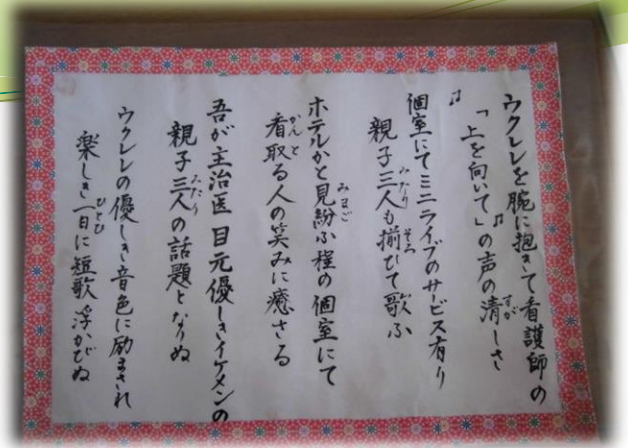 ウクレレを腕に抱きて看護師の
「上を向いて」の声の清しさ
♫
個室にてミニライブのサービス有り
親子三人も揃ひて歌ふ
ホテルかと見紛ふ程の個室にて
看取る人の笑みに癒さる
吾が主治医目元優しきイケメンの
親子三人の話題となりぬ
ウクレレの優しき音色に励まされ
楽しき一日に短歌浮かびぬ